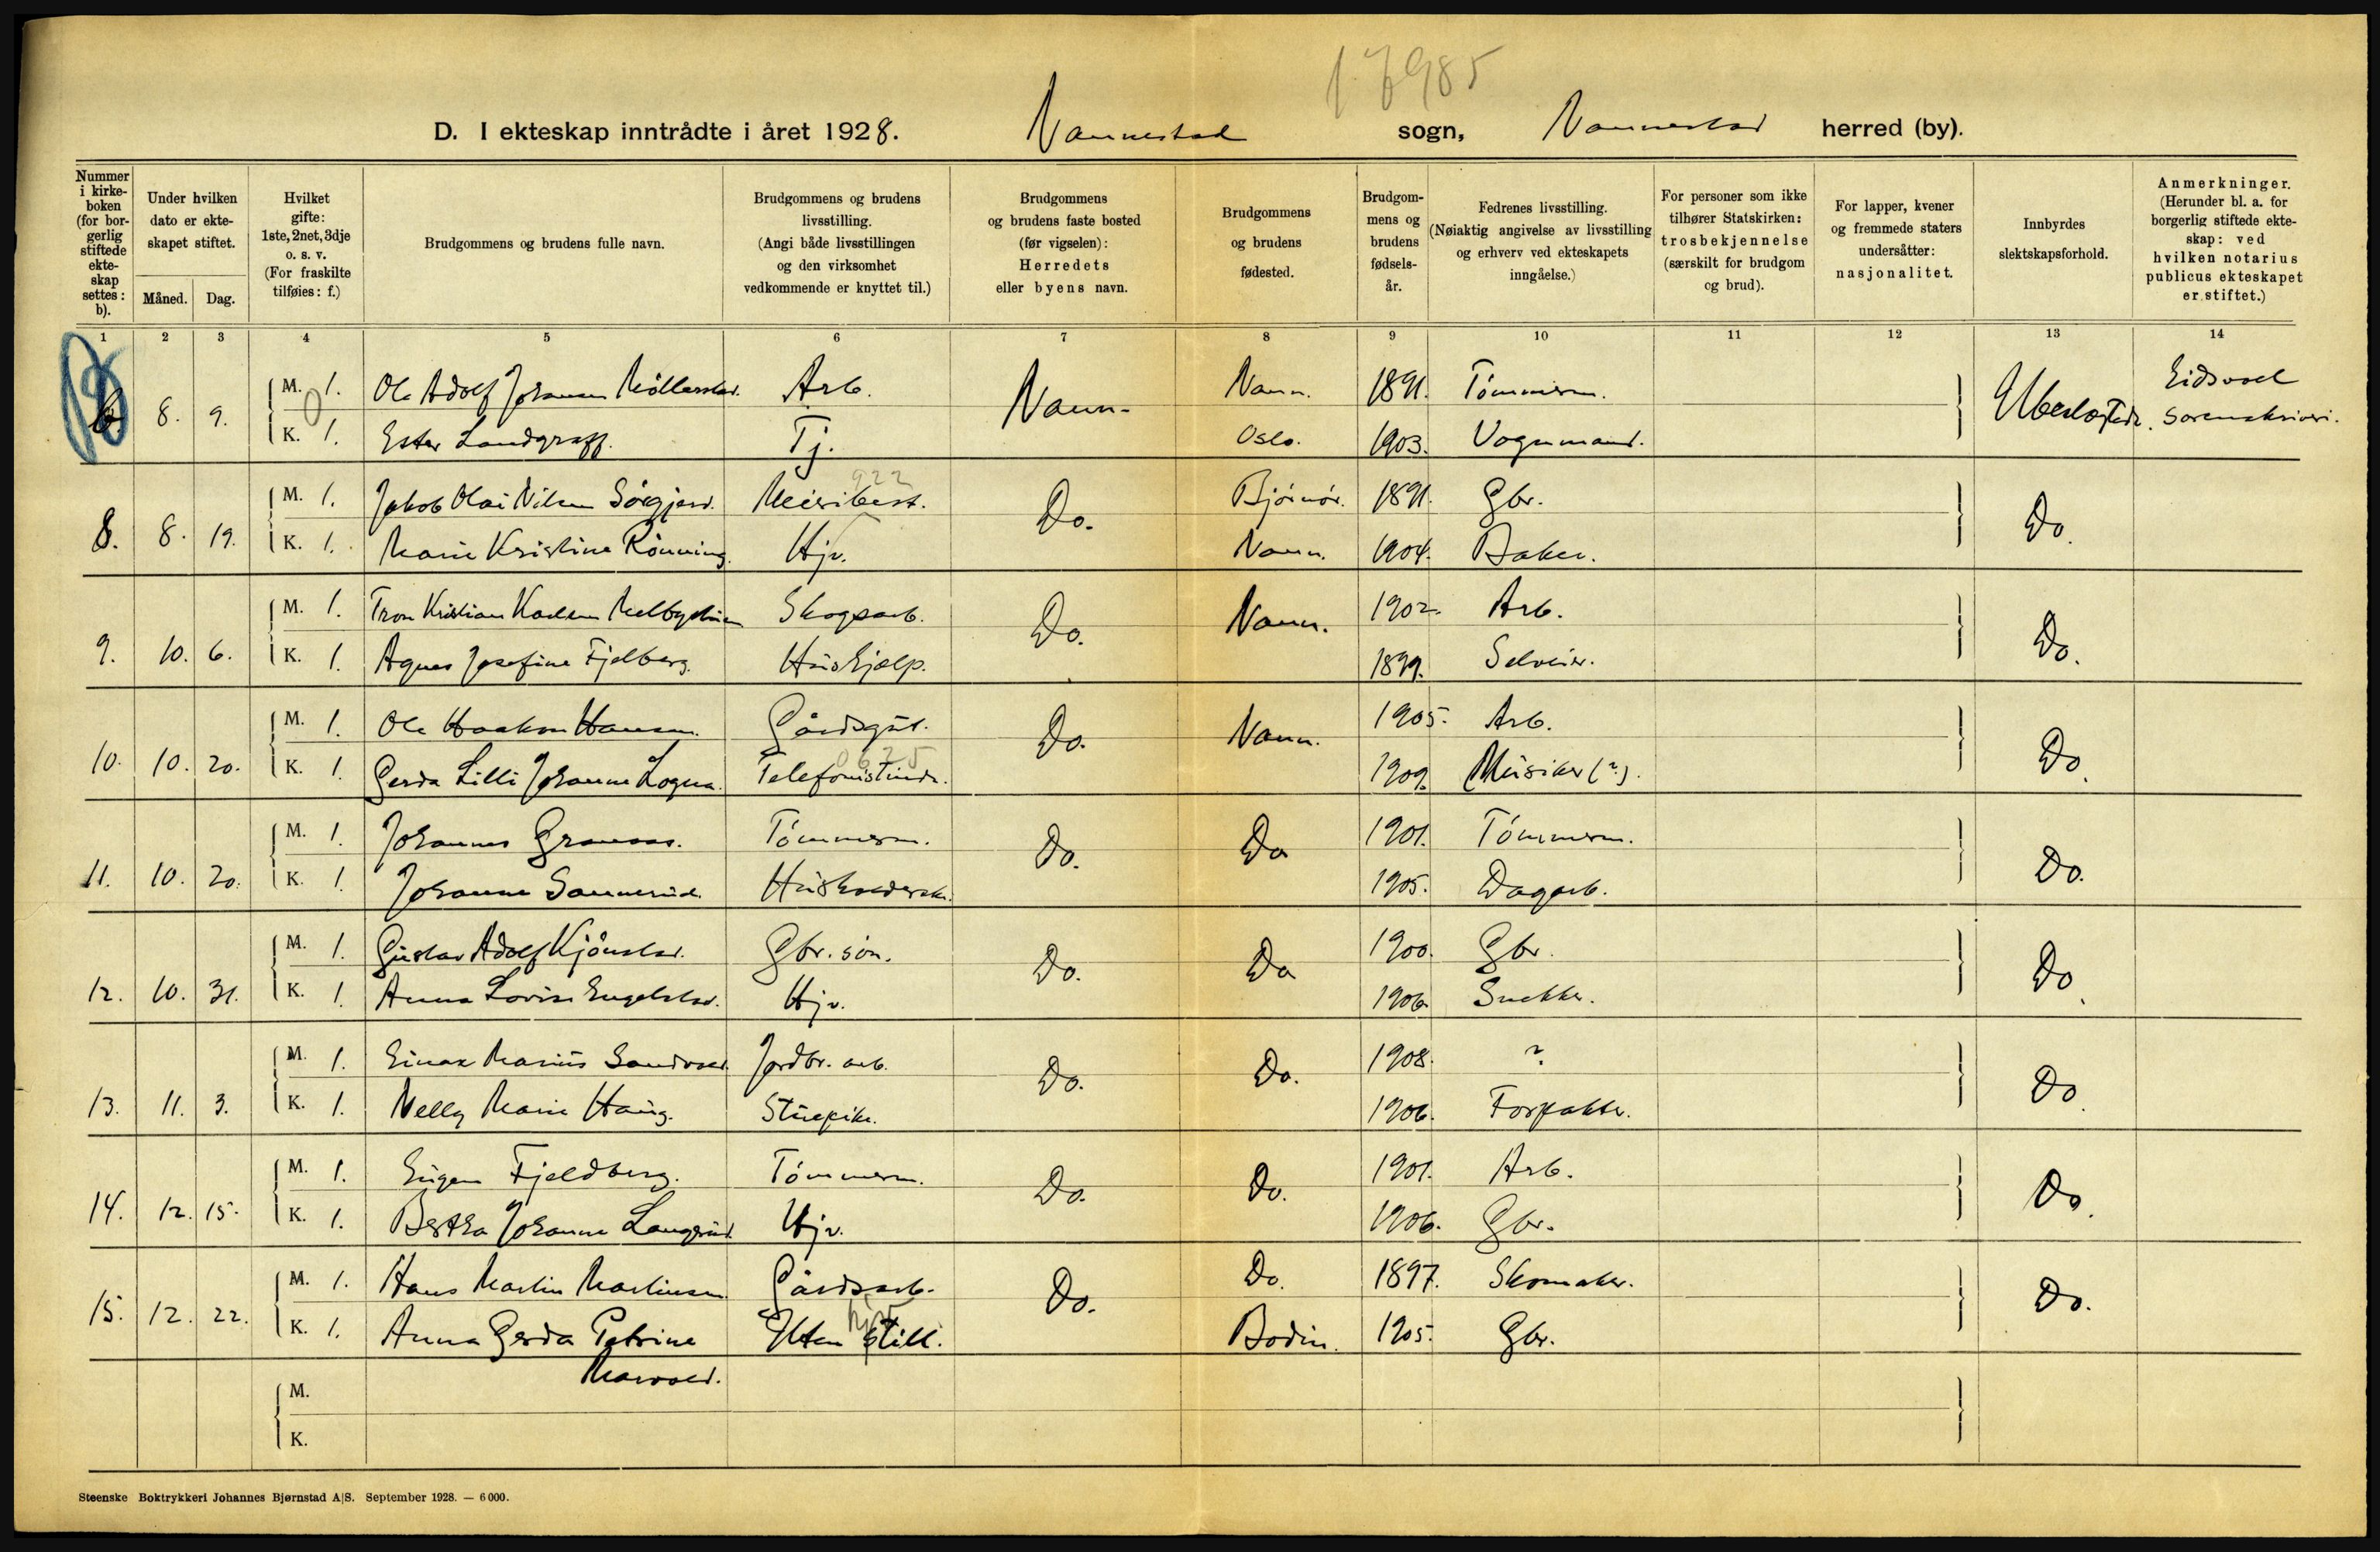 17985
D. I ekteskap inntrådte i året 1928. Nannestad sogn, Nannestad herred (by).
Nummer i kirke-boken (for bor-gerlig stiftede ekte-skap settes: b).
Under hvilken dato er ekte-skapet stiftet.
Måned. Dag.
Hvilket gifte: 1ste, 2net, 3dje o. s. v. (For fraskilte tilføies: f.)
Brudgommens og brudens fulle navn.
Brudgommens og brudens livsstilling. (Angi både livsstillingen og den virksomhet vedkommende er knyttet til.)
Brudgommens og brudens faste bosted (før vigselen): Herredets eller byens navn.
Brudgommens og brudens fødested.
Brudgom-mens og brudens fødsels-år.
Fedrenes livsstilling. (Nøiaktig angivelse av livsstilling og erhverv ved ekteskapets inngåelse.)
For personer som ikke tilhører Statskirken: trosbekjennelse (særskilt for brudgom og brud).
For lapper, kvener og fremmede staters undersåtter: nasjonalitet.
Innbyrdes slektskapsforhold.
Anmerkninger. (Herunder bl. a. for borgerlig stiftede ekte-skap: ved hvilken notarius publicus ekteskapet er stiftet.)
1 2 3 4 5 6 7 8 9 10 11 12 13 14
b. 8. 9. M. 1. Ole Adolf Johansen Møllerstad. Arb. Nann. Nann. 1891. Tømmerm. Ubeslægtede. Eidsvoll Sorenskriveri.
K. 1. Ester Landgraff. Tj. Oslo. 1903. Vognmand.
922
8. 8. 19. M. 1. Jakob Olai Nilsen Sørgjerd. Meieribest. Do. Bjørnør. 1891. Gbr. Do.
K. 1. Marie Kristine Rønning. Hjv. Nann. 1904. Baker.
9. 10. 6. M. 1. Tron Kristian Karlsen Melbystuen Skogsarb. Do. Nann. 1902. Arb. Do.
K. 1. Agnes Josefine Fjelberg. Hushjælp. 1899. Selveier.
10. 10. 20. M. 1. Ole Haakon Hansen. Gårdsgut. Do. Nann. 1905. Arb. Do.
K. 1. Gerda Lilli Johanne Logna. Telefonistinde. 1909. Musiker (?).
11. 10. 20. M. 1. Johannes Granaas. Tømmerm. Do. Do 1901. Tømmerm. Do.
K. 1. Johanne Sannerud. Husholderske. 1905. Dagarb.
12. 10. 31. M. 1. Gustav Adolf Kjønstad. Gbr. søn. Do. Do 1900. Gbr. Do.
K. 1. Anna Lovise Engelstad. Hjv. 1906. Snekker.
13. 11. 3. M. 1. Einar Marius Sandvold. Jordbr. arb. Do. Do. 1908. ? Do.
K. 1. Nelly Marie Haug. Stuepike. 1906. Forpakter.
14. 12. 15. M. 1. Eugen Fjeldberg. Tømmerm. Do. Do. 1901. Arb. Do.
K. 1. Bertha Johanne Langerud. Hjv. 1906. Gbr.
15. 12. 22. M. 1. Hans Martin Martinsen Gårdsarb. Do. Do. 1897. Skomaker. Do.
K. 1. Anna Gerda Petrine Uten still. Bodin. 1905. Gbr.
M.
K.
Steenske Boktrykkeri Johannes Bjørnstad A|S. September 1928. — 6 000.